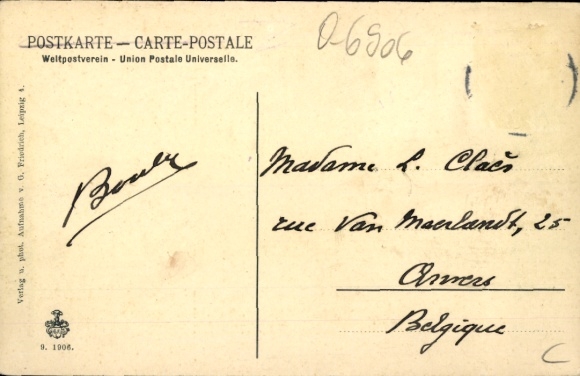 POSTKARTE — CARTE-POSTALE
Weltpostverein - Union Postale Universelle.
0-6906
Verlag u. phot. Aufnahme v. G. Friedrich, Leipzig 4.
Madame L. Claës
rue Van Maerlandt, 25
Anvers
Belgique
9. 1906.
C